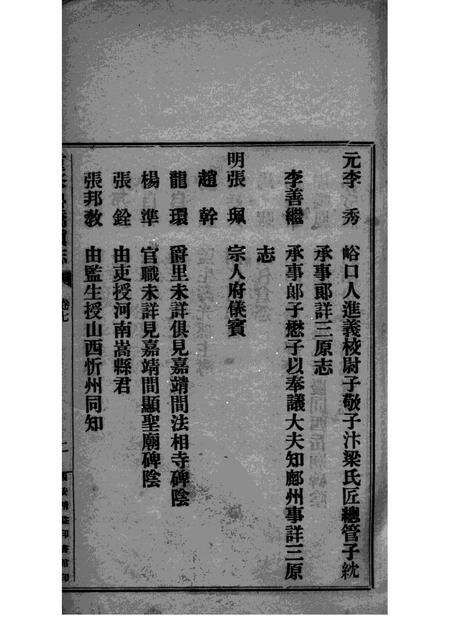 元李秀 峪口人進義校尉子敬子汴梁氏匠總管子紞
承事郞詳三原志
李善繼 承事郞子懋子以奉議大夫知鄜州事詳三原
志
明張珮 宗人府儀賓
趙幹
龍環 爵里未詳俱見嘉靖間法相寺碑陰
楊準 官職未詳見嘉靖間顯聖廟碑陰
張銓 由吏授河南嵩縣君
張邦教 由監生授山西忻州同知
卷七